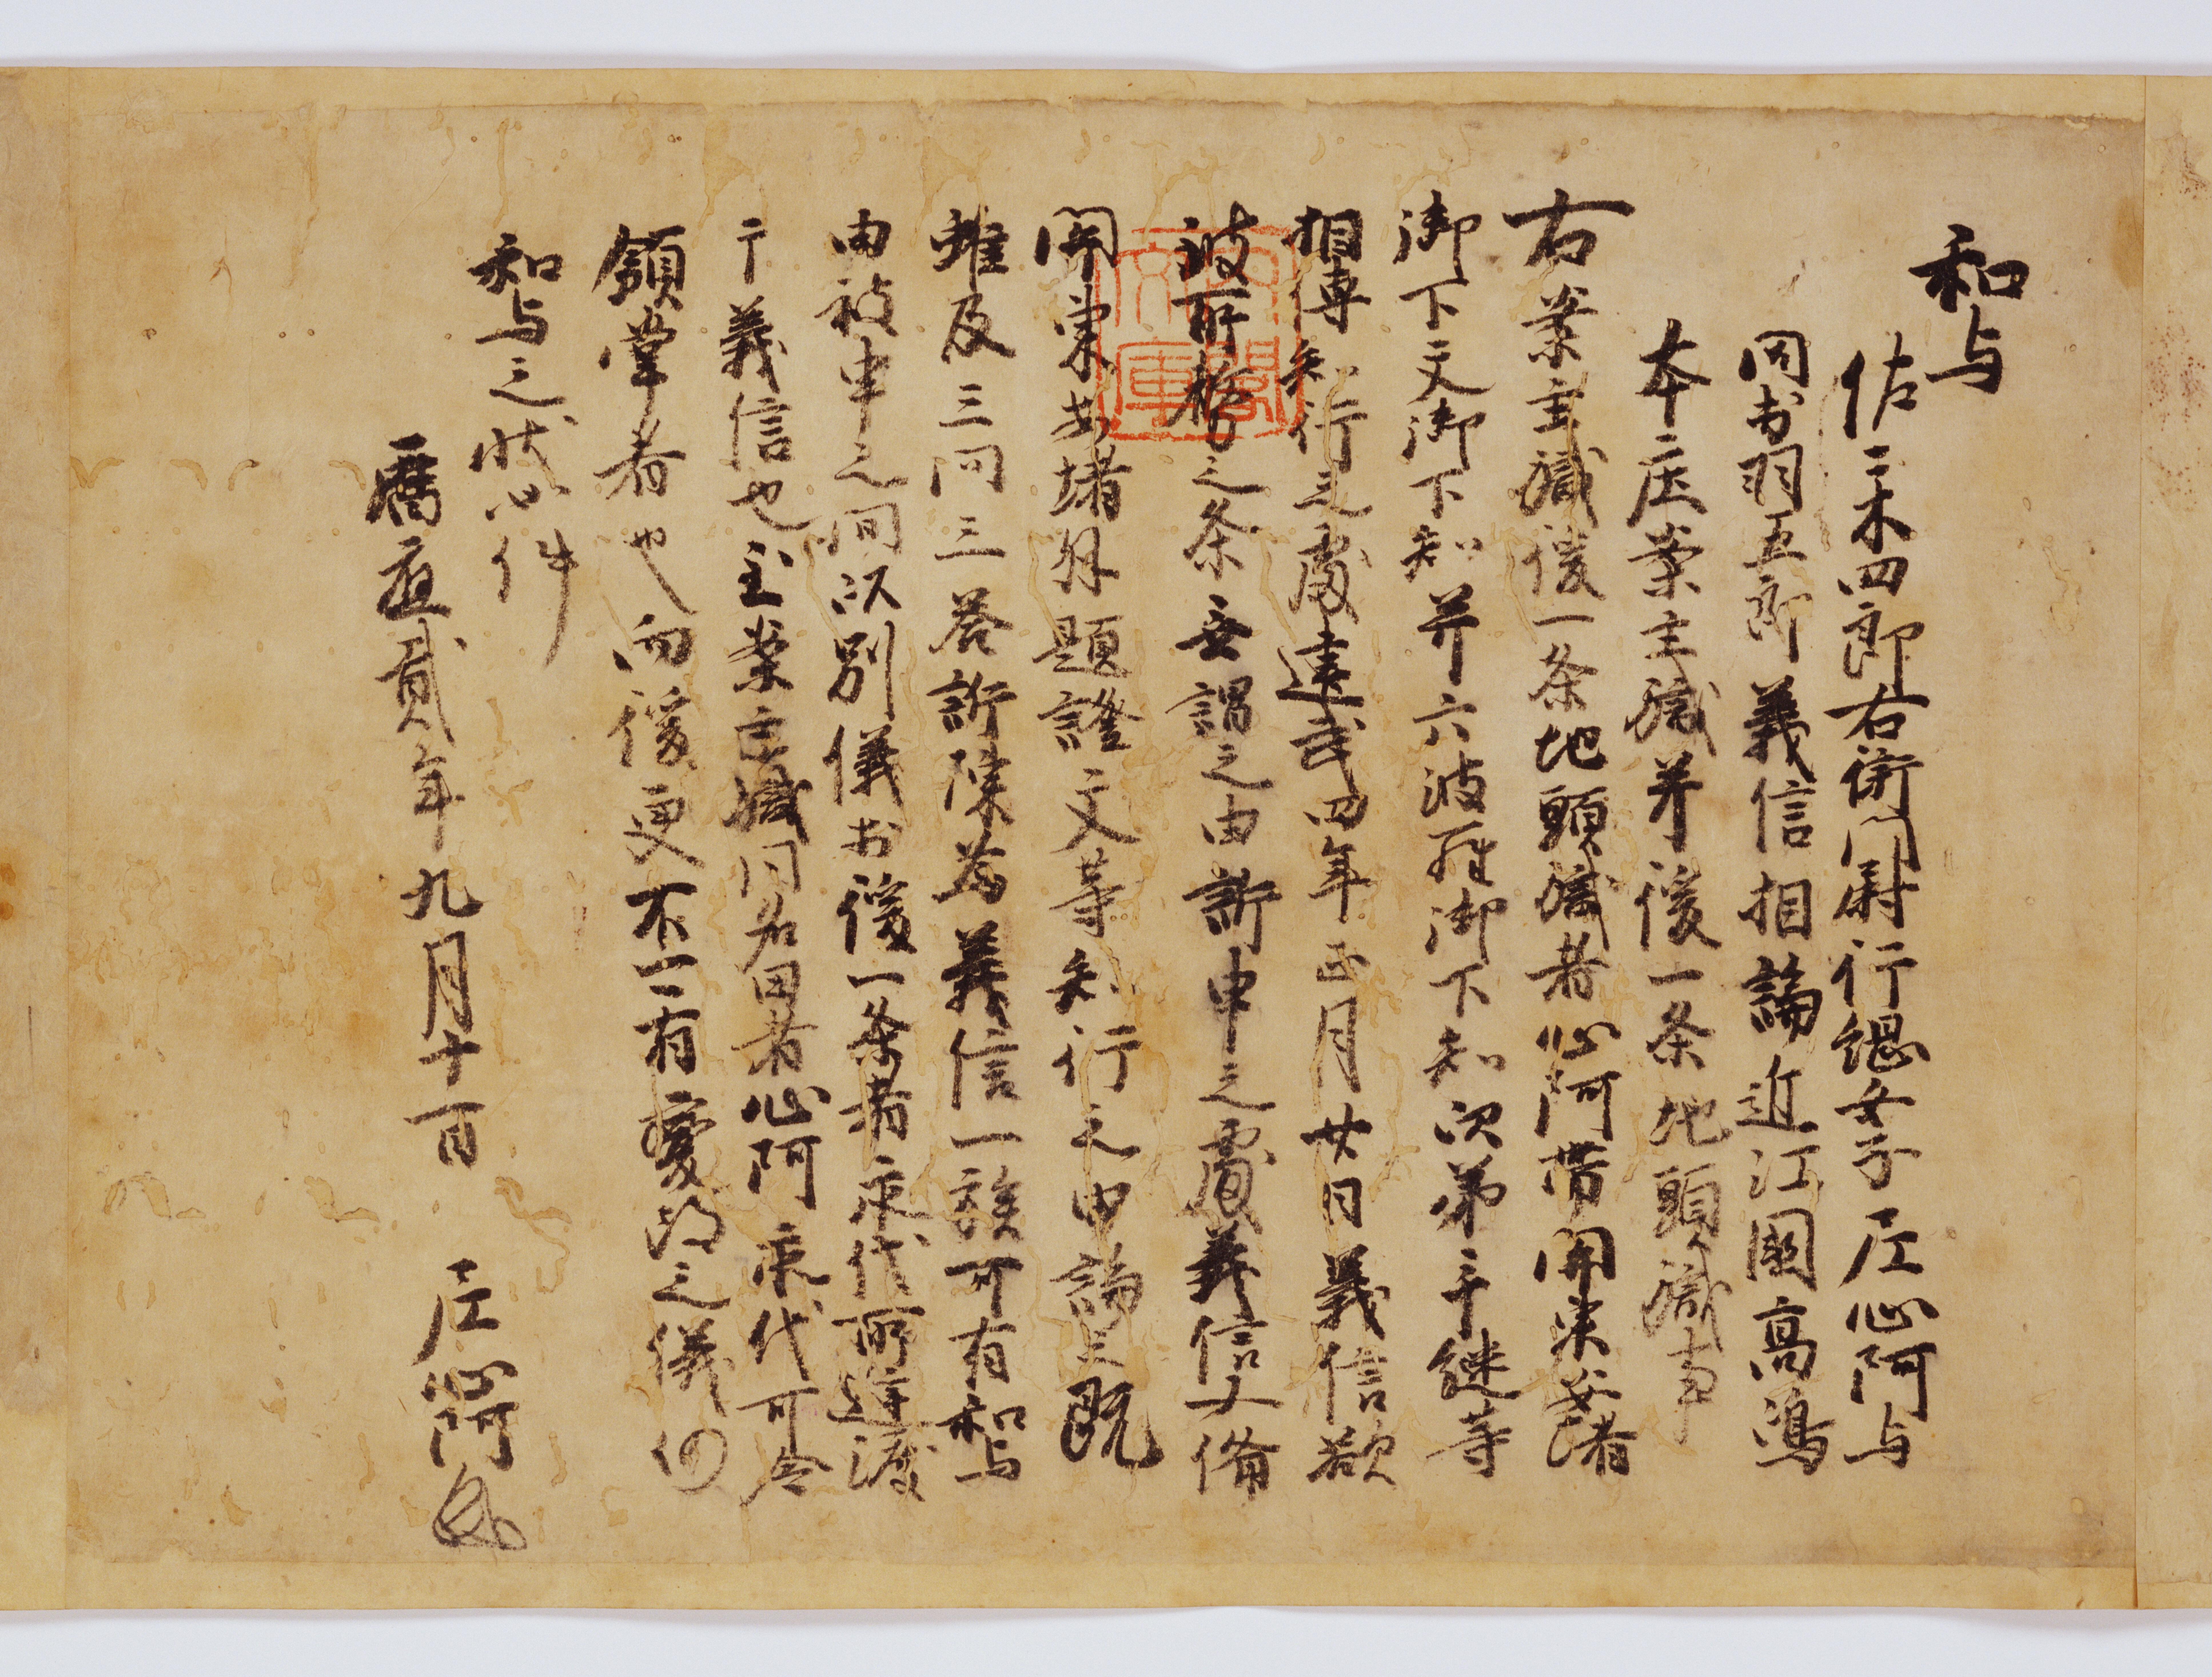 和与
佐々木四郎右衛門尉行綱女子尼心阿与
同出羽五郎義信相論近江国高嶋
本庄案主職并後一条地頭職事
右案主職後一条地頭職者心阿帯関東安堵
御下文御下知并六波羅御下知次第手継等
相傳知行之處建武四年正月廿日義信欲
被所務之条無謂之由訴申之處義信又備
関東安堵外題證文等知行之由論之既
雖及三問三答訴陳為義信一族可有和与
由被申之間以別儀於後一条者永代所避渡
于義信也至案主職同名田者心阿永代可令
領掌者也向後更不可有変改之儀仍
和与之状如件
暦応貳年九月十一日 尼心阿
内閣文庫